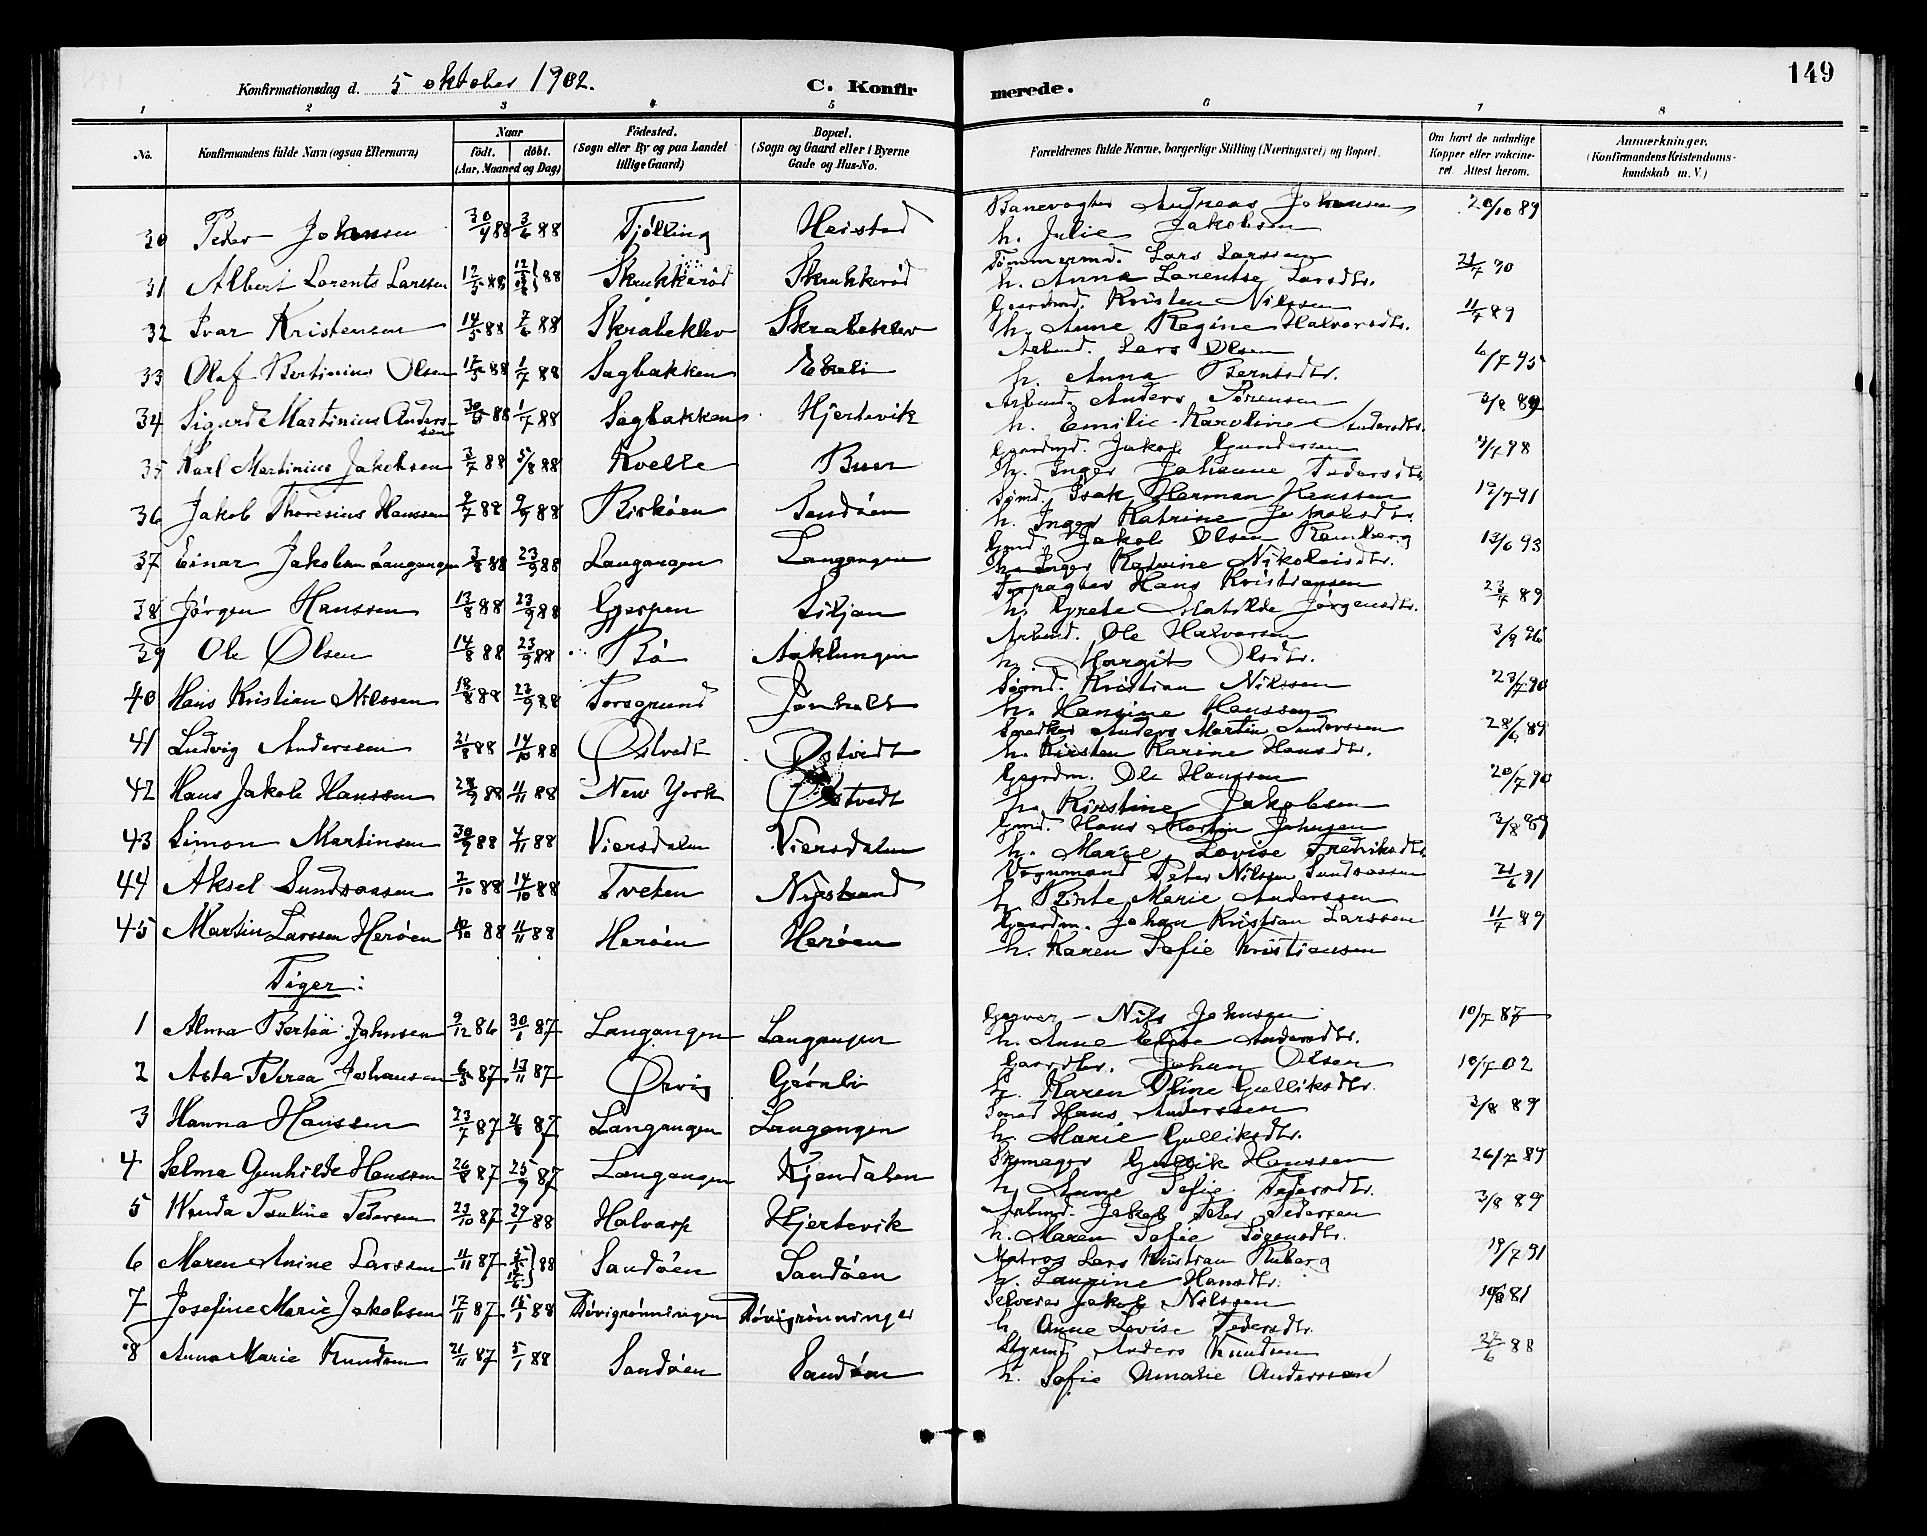 149
Konfirmationsdag d. 5 oktober 1902. C. Konfirmerede.
1 2 3 4 5 6 7 8
No. Konfirmandens fulde Navn (ogsaa Efternavn) Naar født. døbt. (Aar, Maaned og Dag) Fødested. (Sogn eller By og paa Landet tillige Gaard) Bopæl. (Sogn og Gaard eller i Byerne Gade og Hus-No. Forældrenes fulde Navne, borgerlige Stilling (Næringsvei) og Bopæl. Om havt de naturlige Kopper eller vakcineret. Attest herom. Anmærkninger, (Konfirmandens Kristendomskundskab m. V.)
30 Peder Johansen 88 3/6 88 Tjølling Heistad Banevogter Andreas Johansen 20/10 89
h. Julie Jakobsen
31 Albert Lorents Larssen 12/5 88 88 Skrukkerød Skrukkerød Tømmermd. Lars Larssen 21/7 90
h. Anna Larentse Larsdtr.
32 Ivar Kristensen 14/5 88 7/6 88 Skrabeklev Skrabeklev Gaardmd. Kristen Nilssen 11/7 89
h. Anne Regine Halvorsdtr.
33 Olaf Bertinius Olsen 17/5 88 1/7 88 Sagbakken Ekeli Arbmd. Lars Olsen 6/7 95
h. Anna Berntsdtr.
34 Sigurd Martinius Anderssen 30/5 88 1/7 88 Sagbakken Hjertevik Arbmd. Anders Sørensen 3/8 89
h. Emilie Karoline Andersdtr.
35 Karl Martinius Jakobsen 3/7 88 5/8 88 Kvelle Buer Gaardmd. Jakob Gundersen 9/7 98
h. Inger Johanne Pedersdtr.
36 Jakob Thoresius Hanssen 2/7 88 2/9 88 Risøen Sandøen Sømd. Isak Herman Hanssen 19/7 91
h. Inger Katrine Jakobsdtr.
37 Einar Jakobsen Langangen 3/8 88 23/9 88 Langangen Langangen Gmd. Jakob Olsen Ramberg 13/6 93
h. Inger Katrine Nikolaisdtr.
38 Jørgen Hanssen 13/8 88 23/9 88 Gjerpen Siljan Forpagter Hans Kristiansen 23/7 89
h. Grete Matilde Jørgensdtr.
39 Ole Olsen 14/8 88 23/9 88 Bø Aaklungen Arbmd. Ole Halvorsen 3/9 96
h. Margit Olsdtr.
40 Hans Kristian Nilssen 18/8 88 23/9 88 Porsgrund Jønholt Sømd. Kristian Nilssen 23/7 90
h. Hansine Hanssen
41 Ludvig Anderssen 21/8 88 14/10 88 Østvedt Østvedt Snedker Anders Martin Anderssen 28/6 89
h. Kirsten Karine Hansdtr.
42 Hans Jakob Hanssen 28/9 88 11/11 88 New York Østvedt Gaardm. Ole Hanssen 20/7 90
h. Kirstine Jakobsen
43 Simon Martinsen 30/9 88 4/11 88 Viersdalen Viersdalen Gmd. Hans Martin Johnsen 3/8 89
h. Marie Lovise Fredriksdtr.
44 Aksel Sundsaasen 2/10 88 14/10 88 Tveten Nystrand Vognmand Peter Nilsen Sundsaasen 21/6 91
h. Birte Marie Anderssen
45 Martin Larssen Herøen 10/10 88 11/11 88 Herøen Herøen Gaardm. Johan Kristian Larssen 11/7 89
h. Karen Sofie Kristiansen
Piger:
1 Alma Bertea Johnsen 9/12 86 30/1 87 Langangen Langangen Garver - Nils Johnsen 10/7 87
h. Anne Elise Andersdtr.
2 Asta Petrea Johansen 6/5 87 13/11 87 Ørvig Grønli Gaardbr. Johan Olsen 10/7 02
h. Karen Oline Gulliksdtr.
3 Hanna Hanssen 23/7 87 87 Langangen Langangen Smed Hans Anderssen 3/8 89
h. Marie Gulliksdtr.
4 Selma Gunhilde Hanssen 26/8 87 25/9 87 Langangen Kjendalen Skomager Gullik Hanssen 26/7 89
h. Anne Sofie Pedersdtr.
5 Wanda Pauline Petersen 23/10 87 29/7 88 Halvarp Hjertevik Arbmd. Jakob Peter Pedersen 3/8 89
h. Maren Sofie
6 Maren Anine Larssen 11/11 87 88 Sandøen Sandøen Matros Lars Kristian 19/7 91
h. Laurine Hansdtr.
7 Josefine Marie Jakobsen 17/11 87 15/1 88 Døvigrønningen Døvigrønningen Selveier Jakob Nilssen 81
h. Anne Lovise Pedersdtr.
8 Anna Marie Knudsen 21/11 87 5/1 88 Sandøen Sandøen Styrmd. Anders Knudsen 27/6 88
h. Sofie Amalie Anderssen